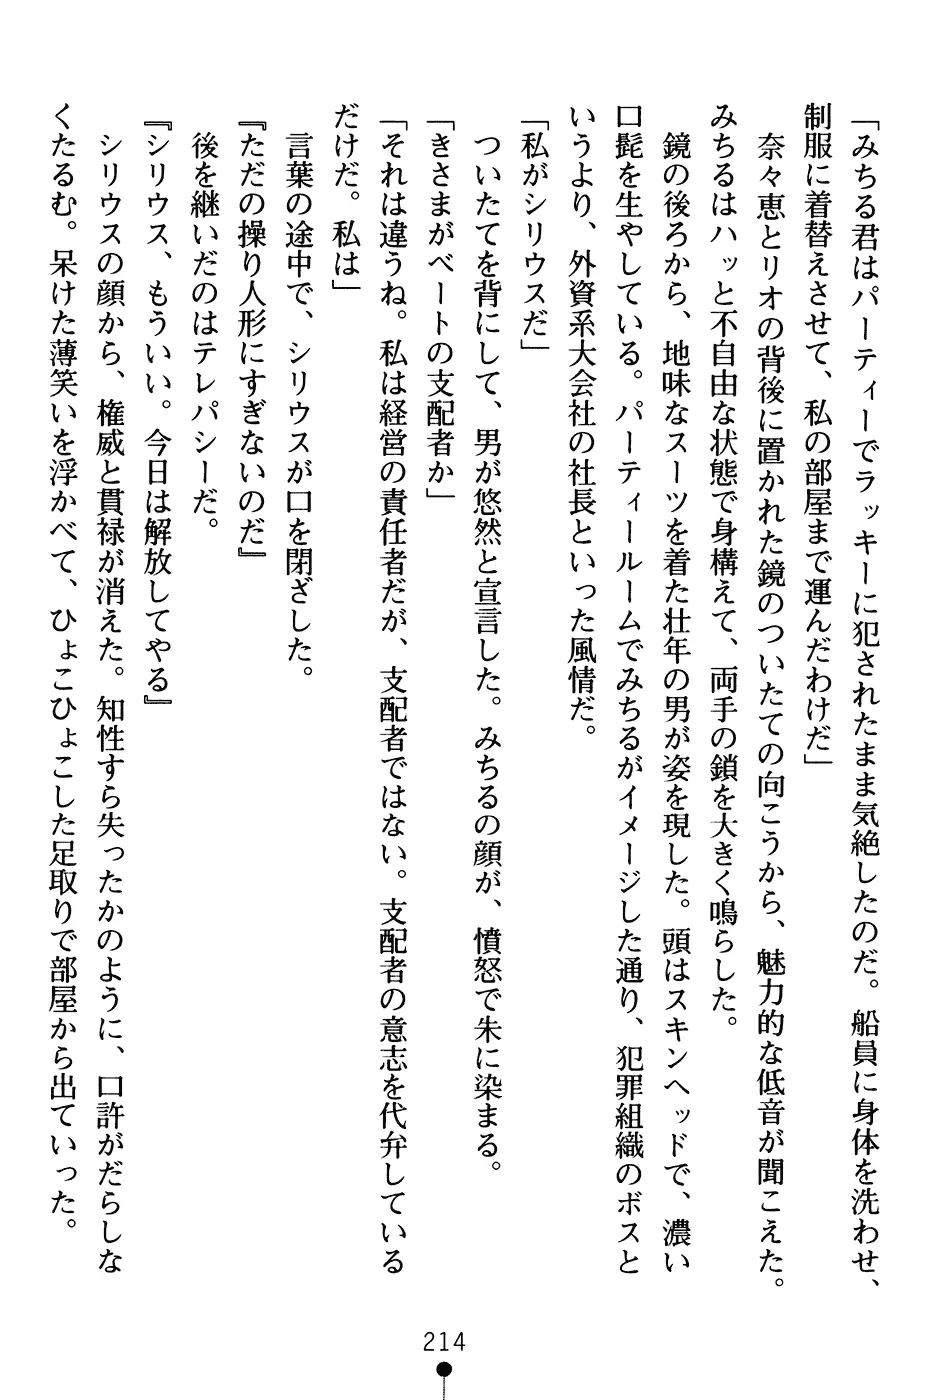 「みちる君はパーティーでラッキーに犯されたまま気絶したのだ。船員に身体を洗わせ、
制服に着替えさせて、私の部屋まで運んだわけだ」
奈々恵とリオの背後に置かれた鏡のついたての向こうから、魅力的な低音が聞こえた。
みちるはハッと不自由な状態で身構えて、両手の鎖を大きく鳴らした。
鏡の後ろから、地味なスーツを着た壮年の男が姿を現した。頭はスキンヘッドで、濃い
口髭を生やしている。パーティールームでみちるがイメージした通り、犯罪組織のボスと
いうより、外資系大会社の社長といった風情だ。
「私がシリウスだ」
ついたてを背にして、男が悠然と宣言した。みちるの顔が、憤怒で朱に染まる。
「きさまがベートの支配者か」
「それは違うね。私は経営の責任者だが、支配者ではない。支配者の意志を代弁している
だけだ。私は」
言葉の途中で、シリウスが口を閉ざした。
『ただの操り人形にすぎないのだ』
後を継いだのはテレパシーだ。
『シリウス、もういい。今日は解放してやる』
シリウスの顔から、権威と貫禄が消えた。知性すら失ったかのように、口許がだらしな
くたるむ。呆けた薄笑いを浮かべて、ひょこひょこした足取りで部屋から出ていった。
214